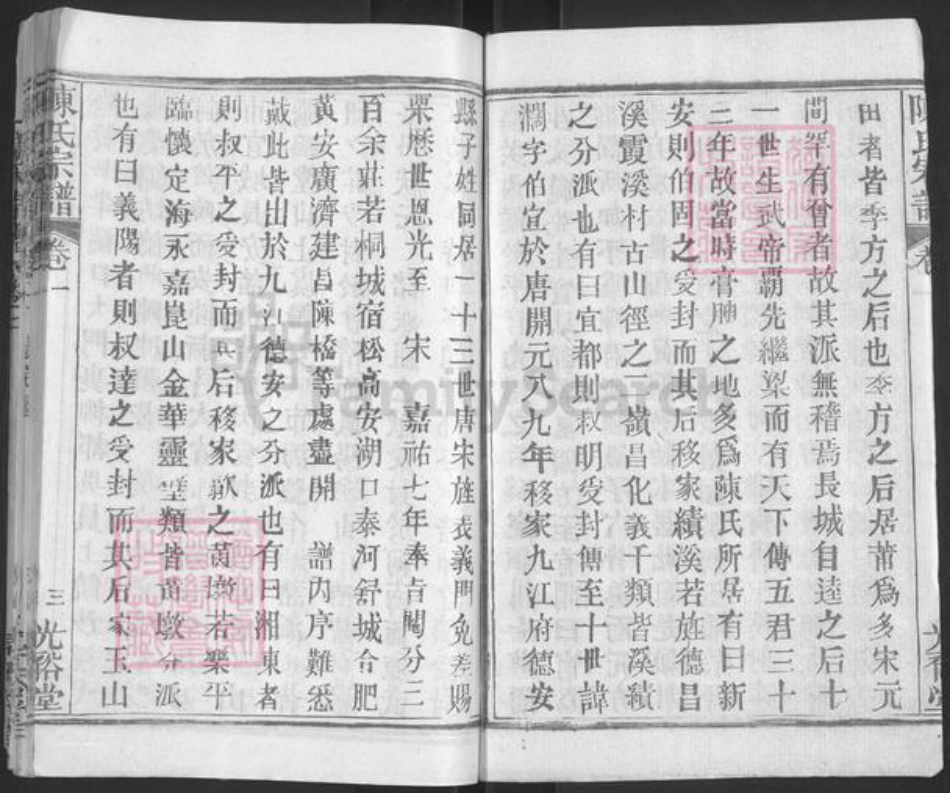 陳氏宗譜 卷一
田者皆季方之后也季方之后居莆爲多宋元
間罕有會者故其派無稽焉長城自逵之后十
一世生武帝霸先繼梁而有天下傳五君三十
三年故當時膏腴之地多爲陳氏所居有曰新
安則伯固之受封而其后移家績溪若旌德昌
溪霞溪村古山徑之二嶺昌化義千類皆溪績
之分派也有曰宜都則叔明受封傳至十世諱
灁字伯宜於唐開元八九年移家九江府德安
縣子姓同居一十三世唐宋旌表義門免差賜
栗歷世恩光至 宋 嘉祐七年奉旨闊分三
百余莊若桐城宿松高安湖口泰河舒城合肥
黃安廣濟建昌陳橋等處盡開 譜內序難悉
載此皆出於九江德安之分派也有曰湘東者
則叔平之受封而其后移家歙之 若樂平
臨懷定海永嘉崑山金華靈 類皆 墩分派
也有曰義陽者則叔達之受封而其后家玉山
陳氏宗譜 卷一 三 光裕堂
FamilySearch